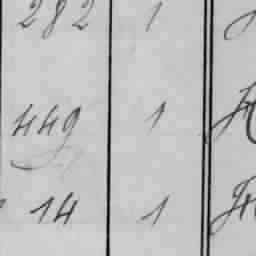 282 1
449 1
14 1